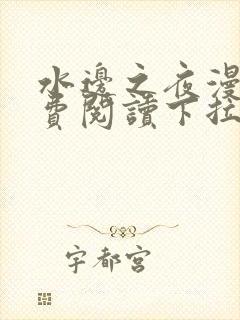 水邊之夜漫
費閱讀下拉
宇都宮